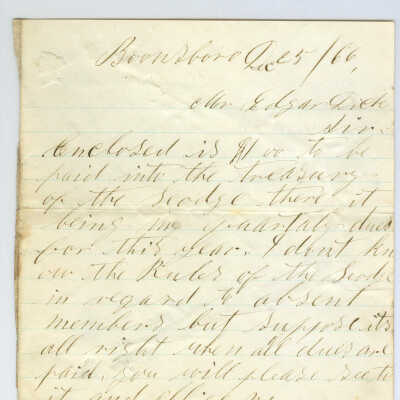 Boonsboro Dec 25/66,
Mr Edgar Dick
Sir.
Enclosed is $1 00 to be
paid into the treasury
of the Lodge there it
being my quartaly dues
for this year. I dont kn
ow the Rules of the Lodge
in regard to absent
members but suppose its
all right when all dues are
paid. you will please see to
it and